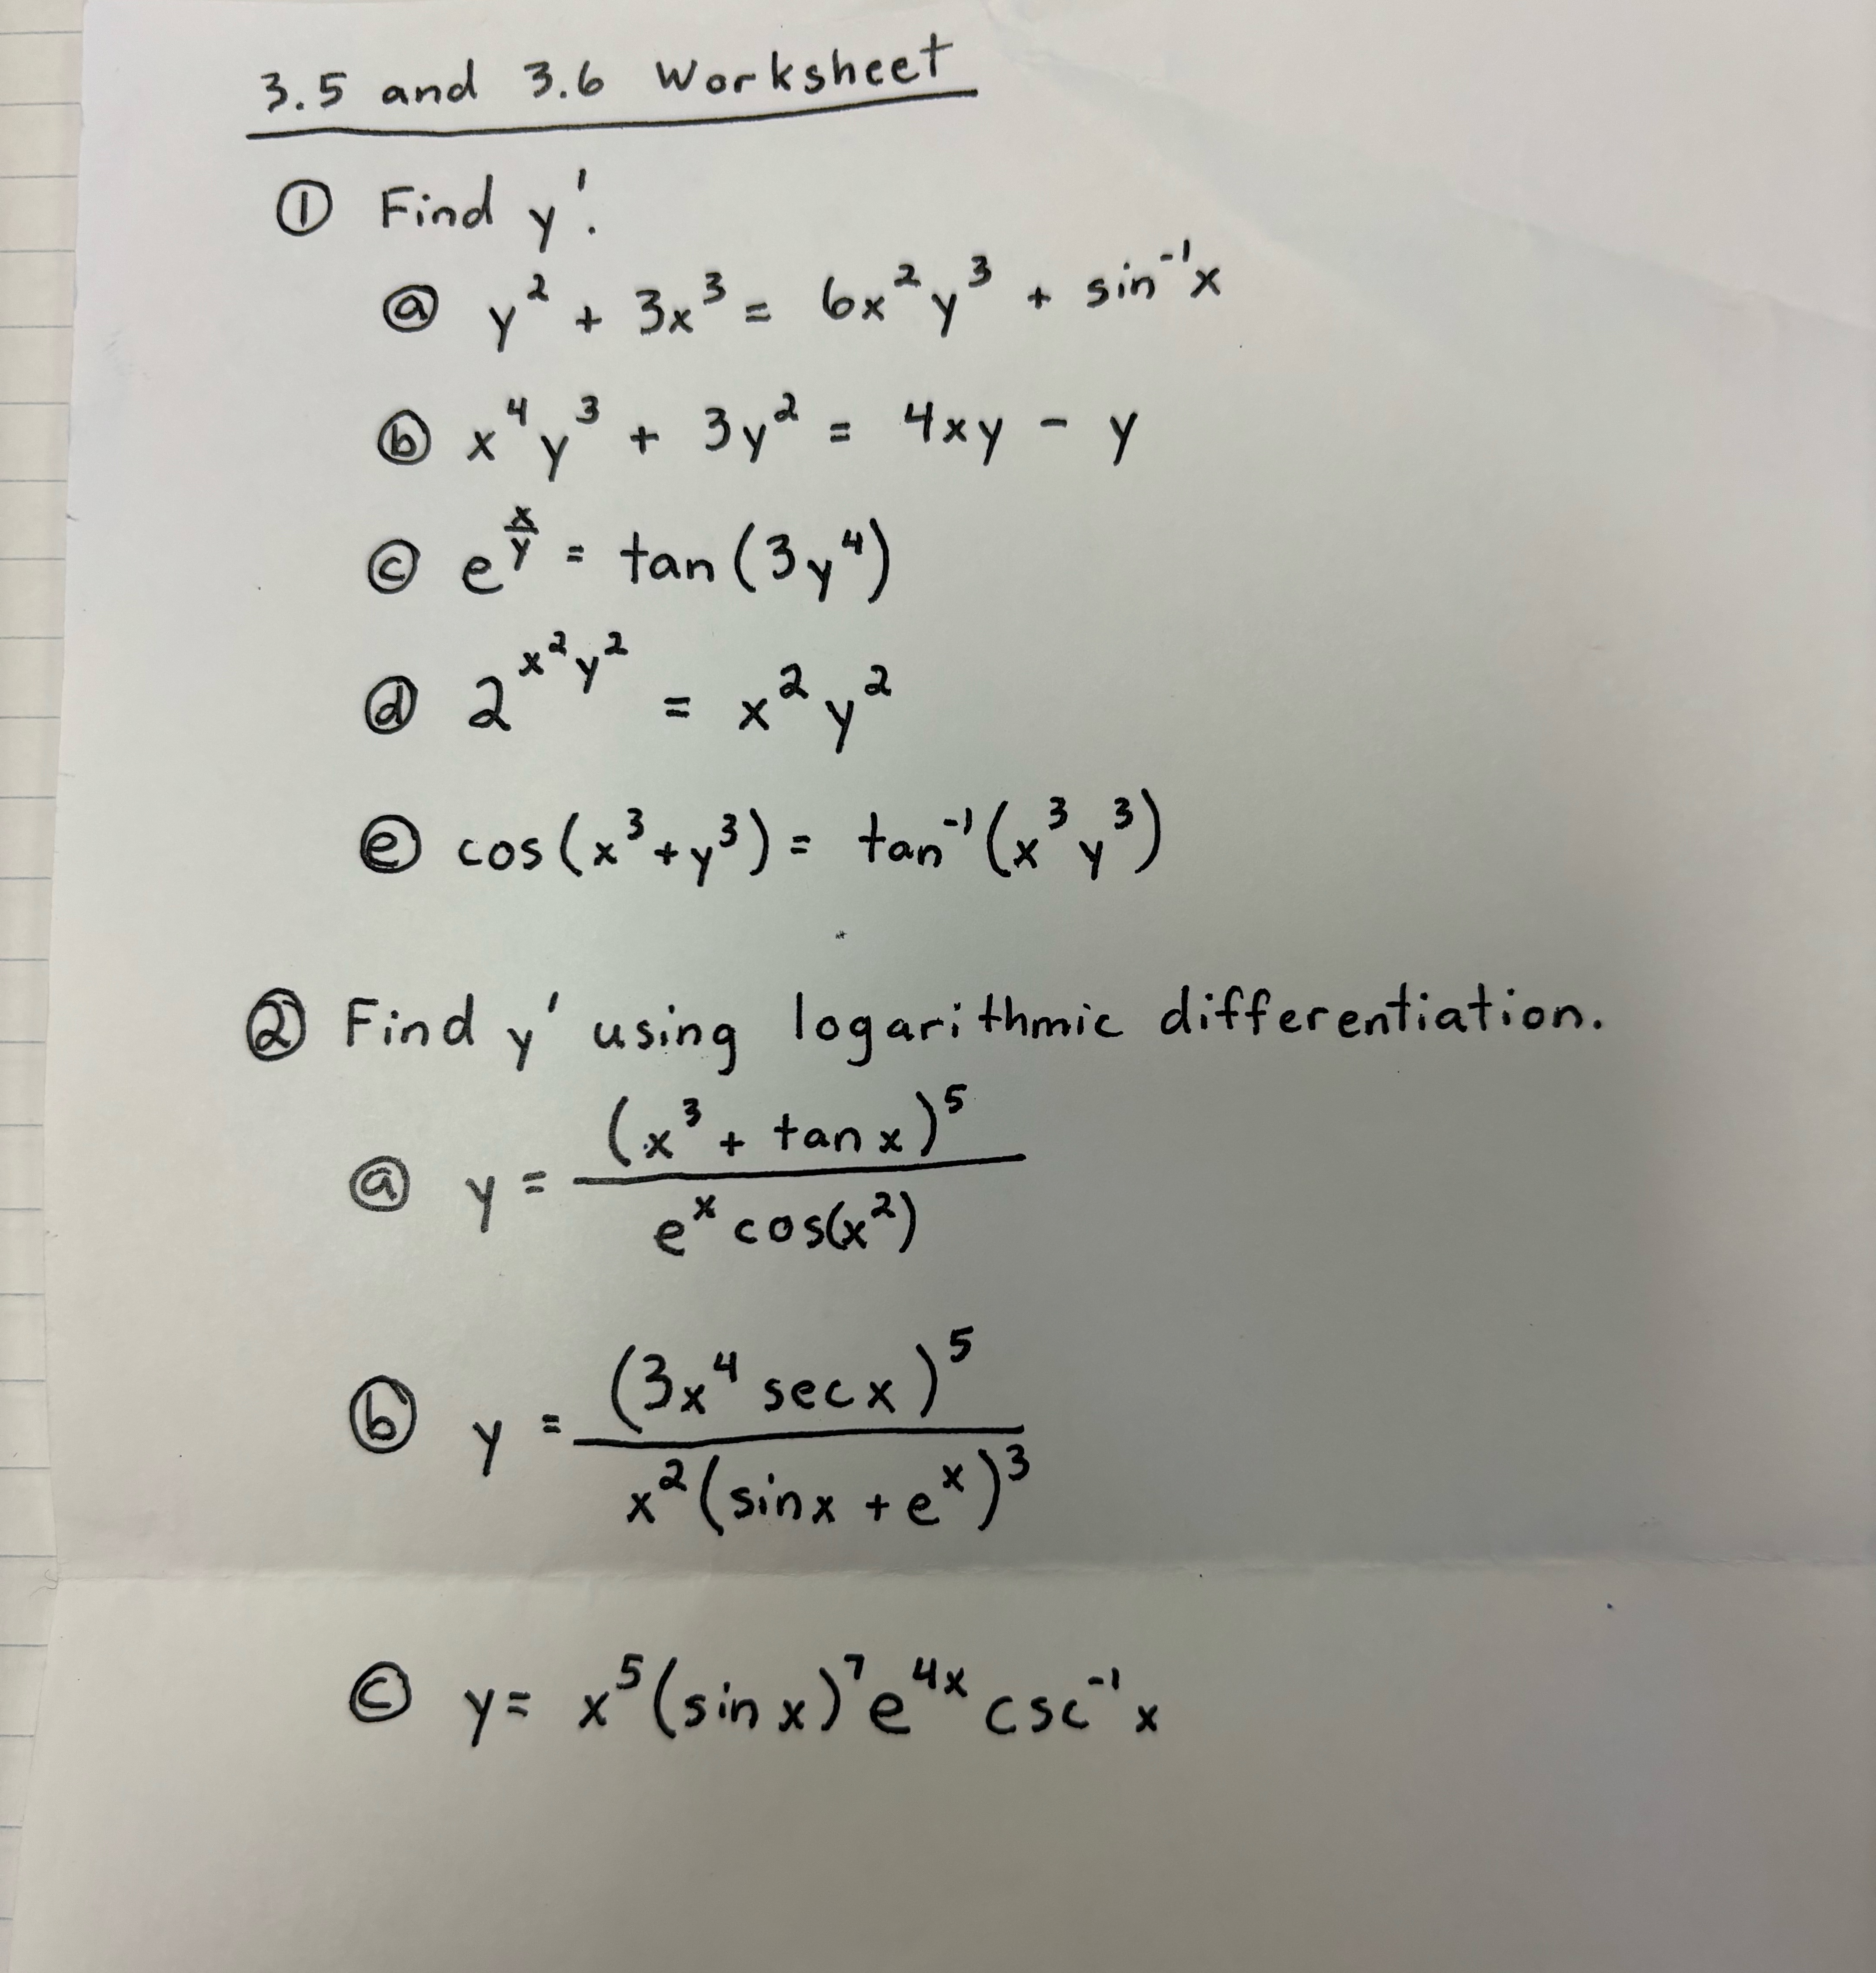 3.5 and 3.6 Worksheet
① Find y'.
ⓐ y² + 3x³ = 6x²y³ + sin⁻¹x
ⓑ x⁴y³ + 3y² = 4xy - y
ⓒ e^(x/y) = tan(3y⁴)
ⓓ 2^(x²y²) = x²y²
ⓔ cos(x³+y³) = tan⁻¹(x³y³)
② Find y' using logarithmic differentiation.
ⓐ y = (x³ + tan x)⁵ / (eˣ cos(x²))
ⓑ y = (3x⁴ sec x)⁵ / (x²(sin x + eˣ)³)
ⓒ y = x⁵(sin x)⁷e⁴ˣ csc⁻¹ x